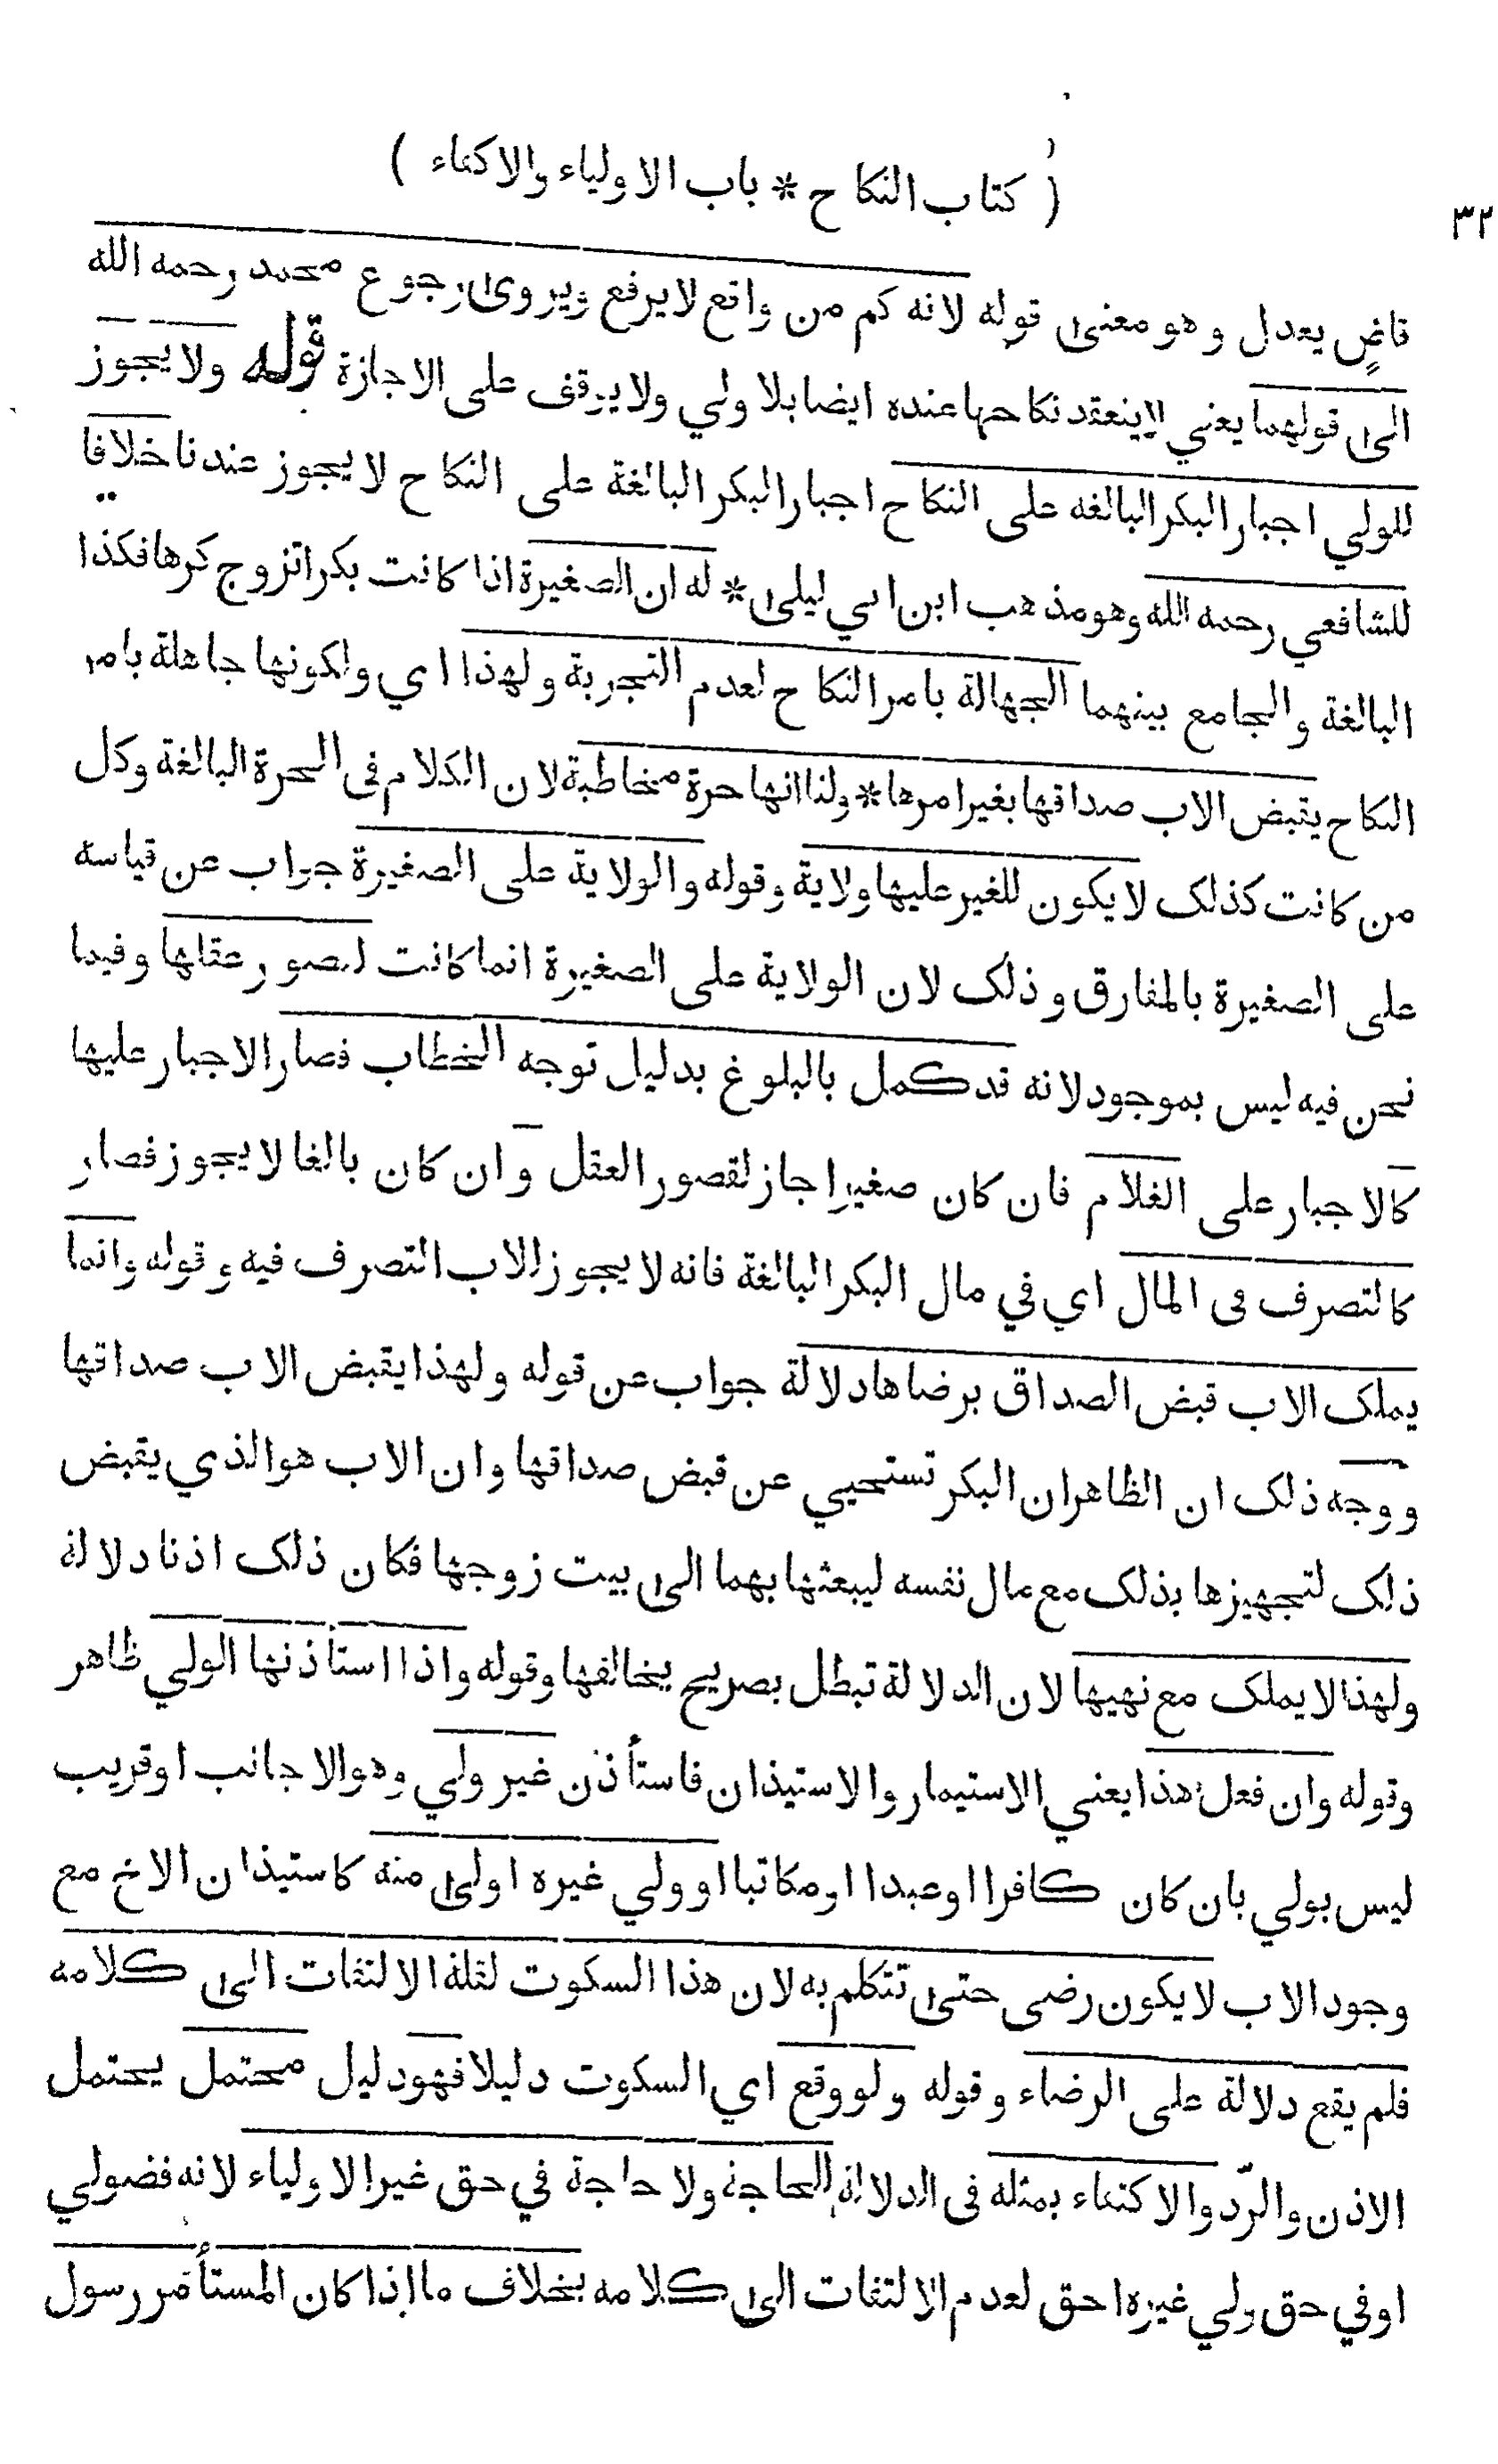 ( كتاب النكاح * باب الاولياء والاكفاء )
٣٢
قاضٍ يعدل وهو معنى قوله لانه كم من واقع لا يرفع ويروى رجوع محمد رحمه الله
الى قولهما يعني لا ينعقد نكاحها عنده ايضا بلا ولي ولا يوقف على الاجازة قوله ولا يجوز
للولي اجبار البكر البالغه على النكاح اجبار البكر البالغة على النكاح لا يجوز عندنا خلافا
للشافعي رحمه الله وهو مذهب ابن ابي ليلى * له ان الصغيرة اذا كانت بكرا تزوج كرها فكذا
البالغة والجامع بينهما الجهالة بامر النكاح لعدم التجربة ولهذا اي ولكونها جاهلة بامر
النكاح يقبض الاب صداقها بغير امرها * ولنا انها حرة مخاطبة لان الكلام فى الحرة البالغة وكل
من كانت كذلك لا يكون للغير عليها ولاية وقوله والولاية على الصغيرة جواب عن قياسه
على الصغيرة بالمفارق وذلك لان الولاية على الصغيرة انما كانت لقصور عقلها وفيما
نحن فيه ليس بموجود لانه قد كمل بالبلوغ بدليل توجه الخطاب فصار الاجبار عليها
كالاجبار على الغلام فان كان صغيرا جاز لقصور العقل وان كان بالغا لا يجوز فصار
كالتصرف فى المال اي في مال البكر البالغة فانه لا يجوز للاب التصرف فيه وقوله وانما
يملك الاب قبض الصداق برضاها دلالة جواب عن قوله ولهذا يقبض الاب صداقها
ووجه ذلك ان الظاهر ان البكر تستحيي عن قبض صداقها وان الاب هو الذي يقبض
ذلك لتجهيزها بذلك مع مال نفسه ليبعثها بهما الى بيت زوجها فكان ذلك اذنا دلالة
ولهذا لا يملك مع نهيها لان الدلالة تبطل بصريح يخالفها وقوله واذا استأذنها الولي ظاهر
وقوله وان فعل هذا يعني الاستيمار والاستيذان فاستأذن غير ولي وهو الاجانب او قريب
ليس بولي بان كان كافرا او عبدا او مكاتبا او ولي غيره اولى منه كاستيذان الاخ مع
وجود الاب لا يكون رضى حتى تتكلم به لان هذا السكوت لقلة الالتفات الى كلامه
فلم يقع دلالة على الرضاء وقوله ولو وقع اي السكوت دليلا فهو دليل محتمل يحتمل
الاذن والرّد والاكتفاء بمثله فى الدلالة للحاجة ولا حاجة في حق غير الاولياء لانه فضولي
او في حق ولي غيره احق لعدم الالتفات الى كلامه بخلاف ما اذا كان المستأمر رسول